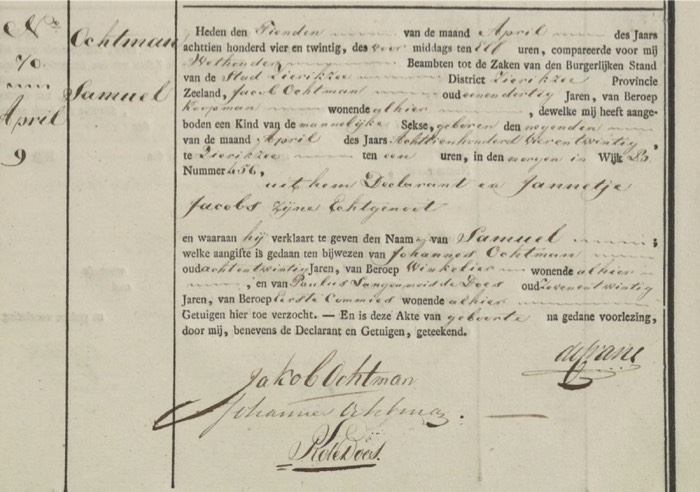 No
70
April
9
Ochtman,
Samuel
Heden den Tienden van de maand April des Jaars
achttien honderd vier en twintig, des voor middags ten Elf uren, compareerde voor mij
Wethouder Beambten tot de Zaken van den Burgerlijken Stand
van de Stad Zierikzee District Zierikzee Provincie
Zeeland, Jacob Ochtman oud eenendertig Jaren, van Beroep
Koopman wonende alhier, dewelke mij heeft aange-
boden een Kind van de mannelijke Sekse, geboren den negenden
van de maand April des Jaars Achttienhonderd Vierentwintig,
te Zierikzee ten een uren, in den morgen in Wijk
Nummer 456,
uit hem Declarant en Jannetje
Jacobs zijne Echtgenoot
en waaraan hij verklaart te geven den Naam van Samuel;
welke aangifte is gedaan ten bijwezen van Johannes Ochtman
oud achtentwintig Jaren, van Beroep Winkelier wonende alhier
, en van Paulus de Does oud Zevenentwintig
Jaren, van Beroep Eerste Commies wonende alhier
Getuigen hier toe verzocht. — En is deze Akte van geboorte na gedane voorlezing,
door mij, benevens de Declarant en Getuigen, geteekend.
Jakob Ochtman
Johannes Ochtman